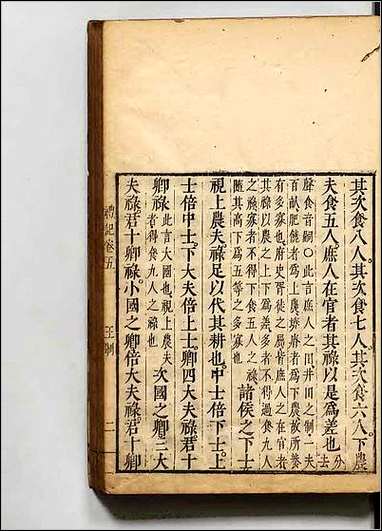 其次食八人其次食七人其次食六人下農
夫食五人庶人在官者其祿以是為差也分去
聲食音嗣○此言庶人之田井田之制一夫
百畝肥饒者為上農墝瘠者為下農故所養
有多寡也府史胥徒之屬皆庶人之在官者
其祿以農之上下為差多者不得過食九人
之祿寡者不得下食五人之祿
隨其高下為五等之多寡也
諸侯之下士
視上農夫祿足以代其耕也中士倍下士上
士倍中士下大夫倍上士卿四大夫祿君十
卿祿此言大國也視上農夫祿者得食九人之祿也次國之卿三大
夫祿君十卿祿小國之卿倍大夫祿君十卿
禮記卷五 王制 二